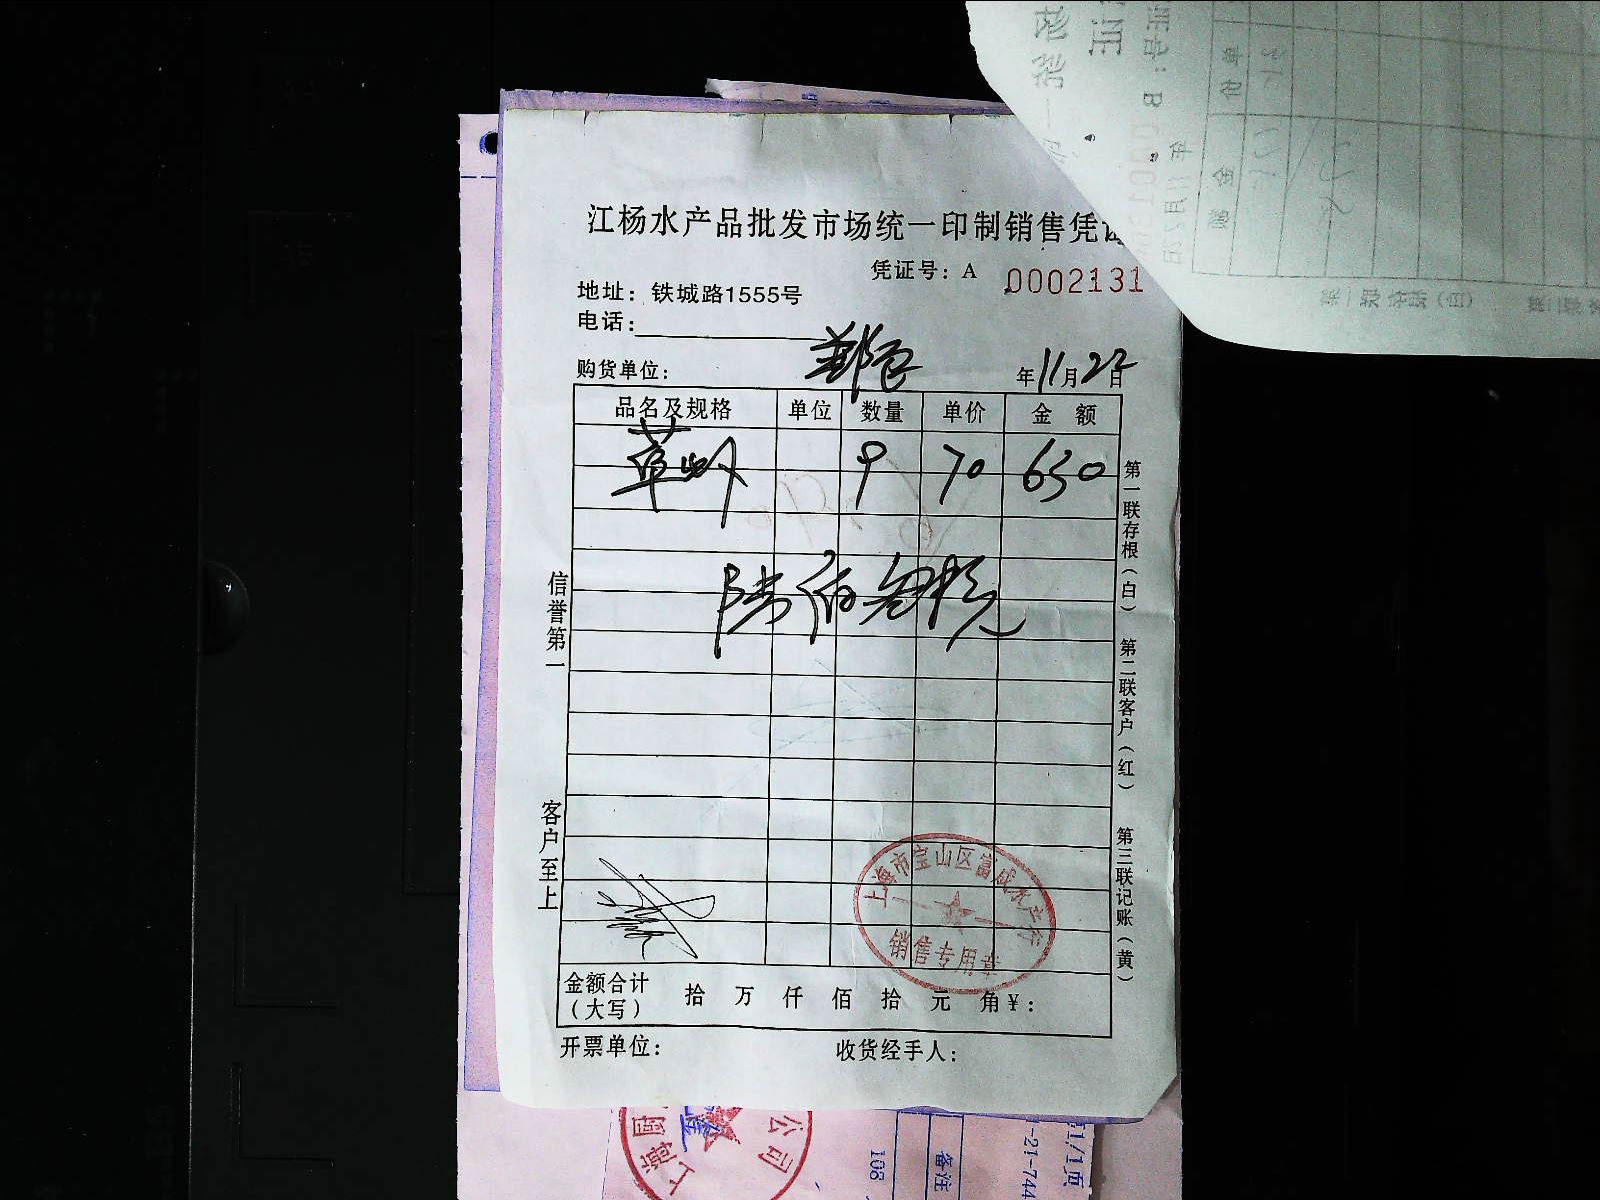 江杨水产品批发市场统一印制销售凭证
凭证号：A 0002131
地址：铁城路1555号
电话：
购货单位： 年11月22日
品名及规格 单位 数量 单价 金额
草虾 9 70 630
陆佰叁拾元
信誉第一
客户至上
第一联存根（白） 第二联客户（红） 第三联记账（黄）
上海市宝山区富成水产行
销售专用章
金额合计（大写） 拾 万 仟 佰 拾 元 角 ¥：
开票单位： 收货经手人：
公司
备注
108
1/1页
-21-744